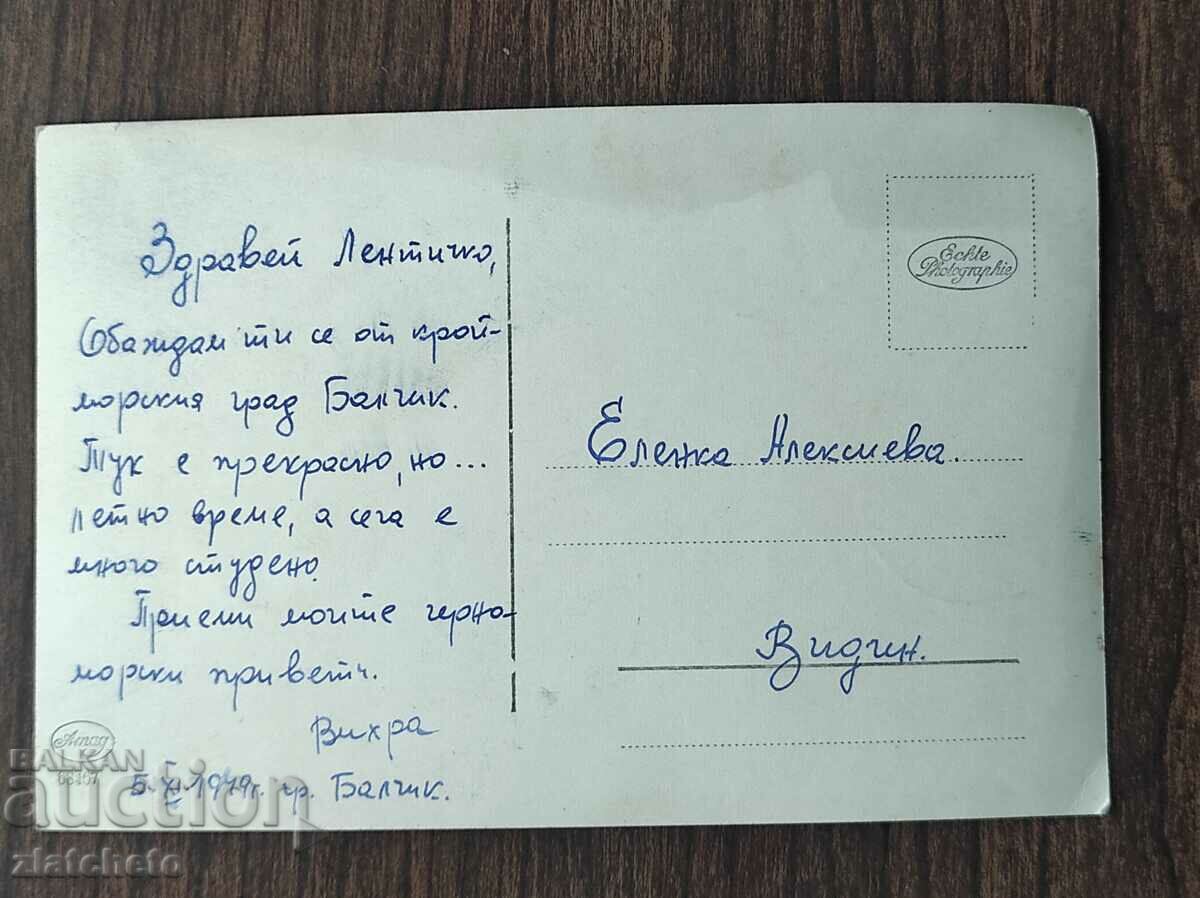 Здравей Лентичко,
Обаждам ти се от край-
морския град Балчик.
Тук е прекрасно, но...
лятно време, а сега е
много студено.
Приеми моите черно-
морски привети.
Вихра
5.XI.1949г. гр. Балчик.
Echte
Photographie
Еленка Алексиева.
Видин.
Amag
BALKAN
auction
zlatcheto